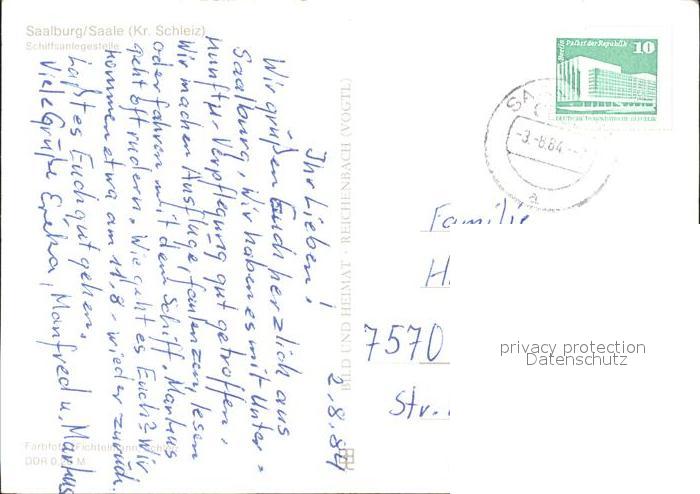 Saalburg/Saale (Kr. Schleiz)
Schiffsanlegestelle
2.8.84
Ihr Lieben!
Wir grüßen Euch herzlich aus
Saalburg. Wir haben es mit Unter-
kunft u. Verpflegung gut getroffen.
Wir machen Ausflüge, faulenzen, lesen
oder fahren mit dem Schiff. Markus
geht oft rudern. Wie geht es Euch? Wir
kommen etwa am 11.8. wieder zurück.
Laßt es Euch gut gehen.
Viele Grüße Erika, Manfred u. Markus
DDR 0,
M
BILD UND HEIMAT · REICHENBACH (VOGTL)
Berlin Palast der Republik
10
DEUTSCHE DEMOKRATISCHE REPUBLIK
SA
-3.-8.84
a
Familie
H
7570
Str.
privacy protection
Datenschutz